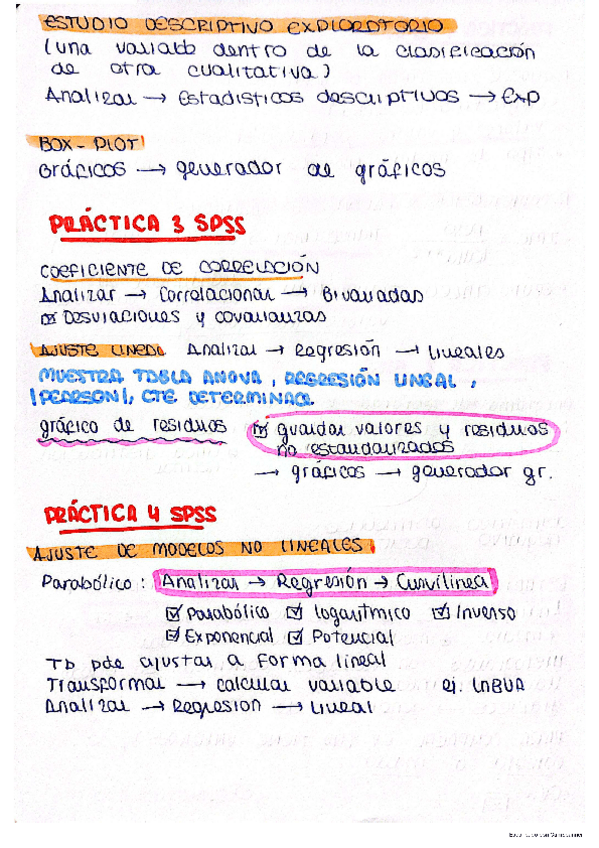 ESTUDIO DESCRIPTIVO EXPLORATORIO
(una variabb dentro de la clasificación
de otra cualitativa)
Analizar → Estadísticos descriptivos → Exp
BOX-PLOT
Gráficos → generador de gráficos
PRÁCTICA 3 SPSS
COEFICIENTE DE CORRELACIÓN
Analizar → Correlacionar → Bivariadas
☑ Desviaciones y covarianzas
AJUSTE LINEAL Analizar → Regresión → Lineales
MUESTRA TABLA ANOVA, REGRESIÓN LINEAL,
|PEARSON|, CTE DETERMINAC.
gráfico de residuos ☑ guardar valores y residuos
no estandarizados
→ gráficos → generador gr.
PRÁCTICA 4 SPSS
AJUSTE DE MODELOS NO LINEALES
Parabólico: Analizar → Regresión → Curvilínea
☑ Parabólico ☑ logarítmico ☑ Inverso
☑ Exponencial ☑ Potencial
Tb pde ajustar a forma lineal
Transformar → calcular variable ej. LNBUA
Analizar → Regresion → Lineal